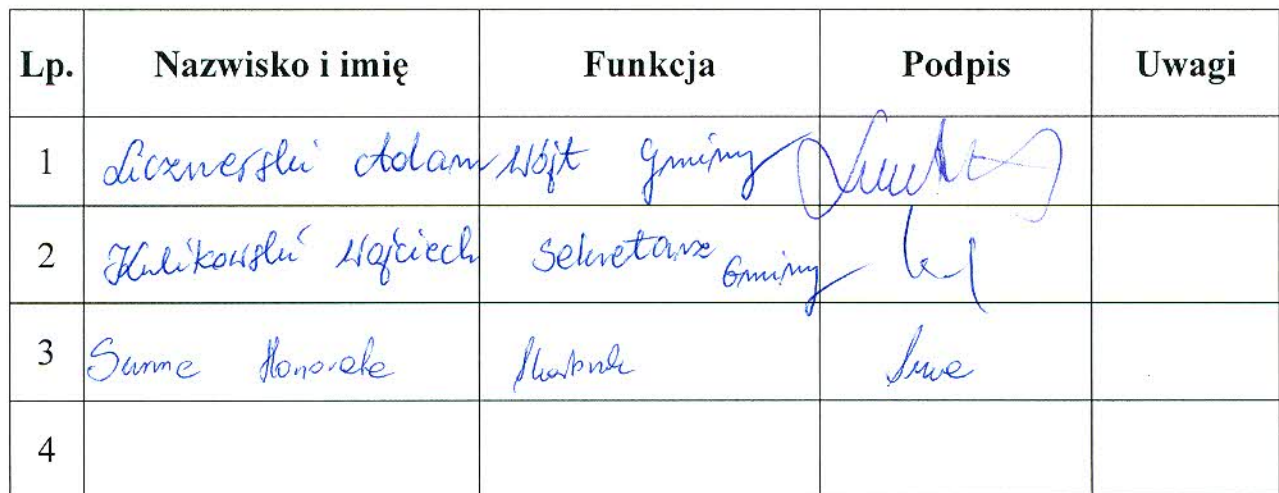 Lp. Nazwisko i imię Funkcja Podpis Uwagi
1 Licznerski Adam Wójt Gminy
2 Kulikowski Wojciech Sekretarz Gminy
3 Honorata Skarbnik
4